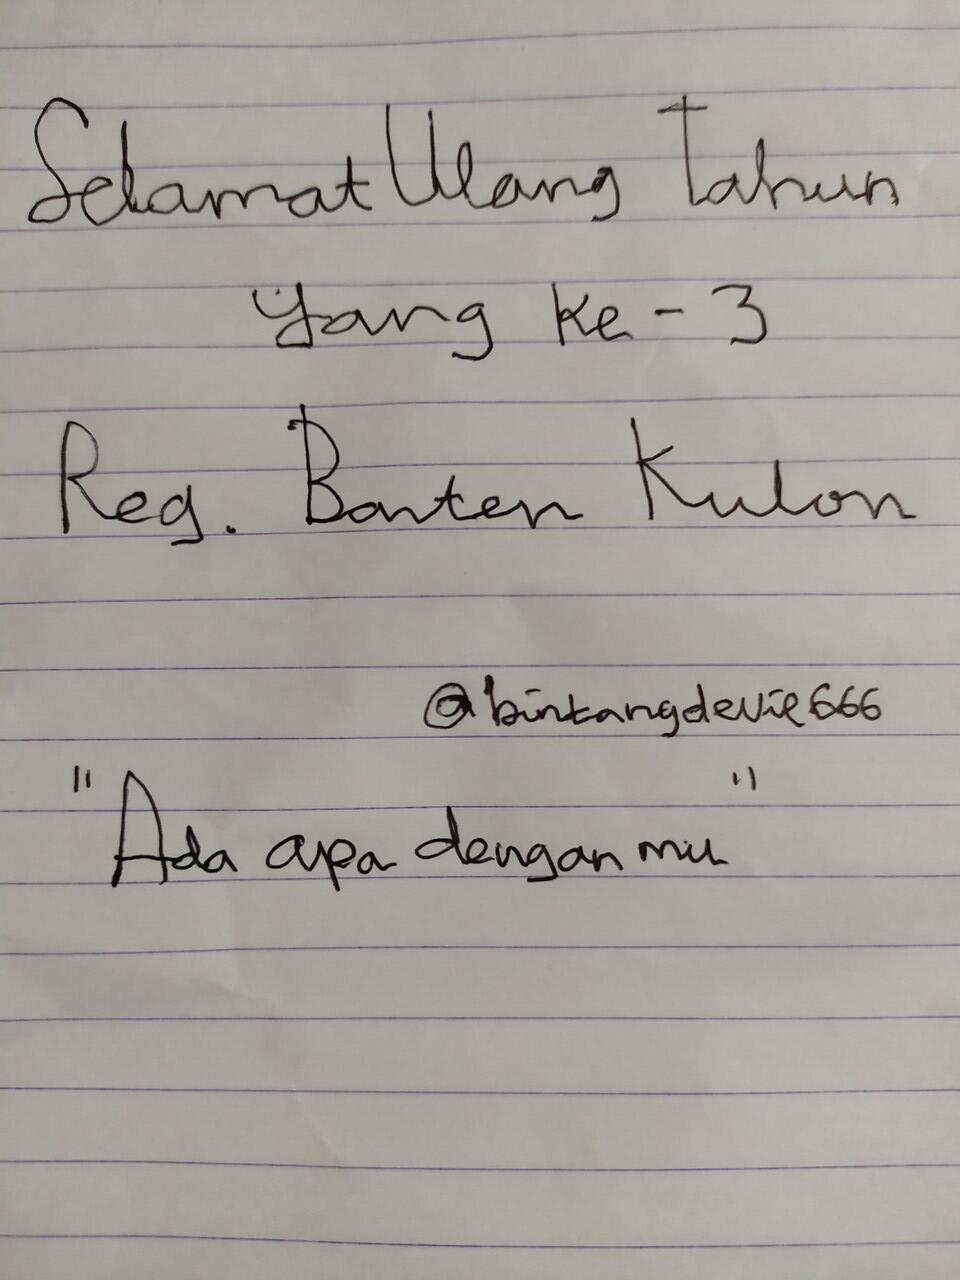 Selamat Ulang Tahun
yang ke-3
Reg. Banten Kulon
@bintangdevie666
"Ada apa denganmu"